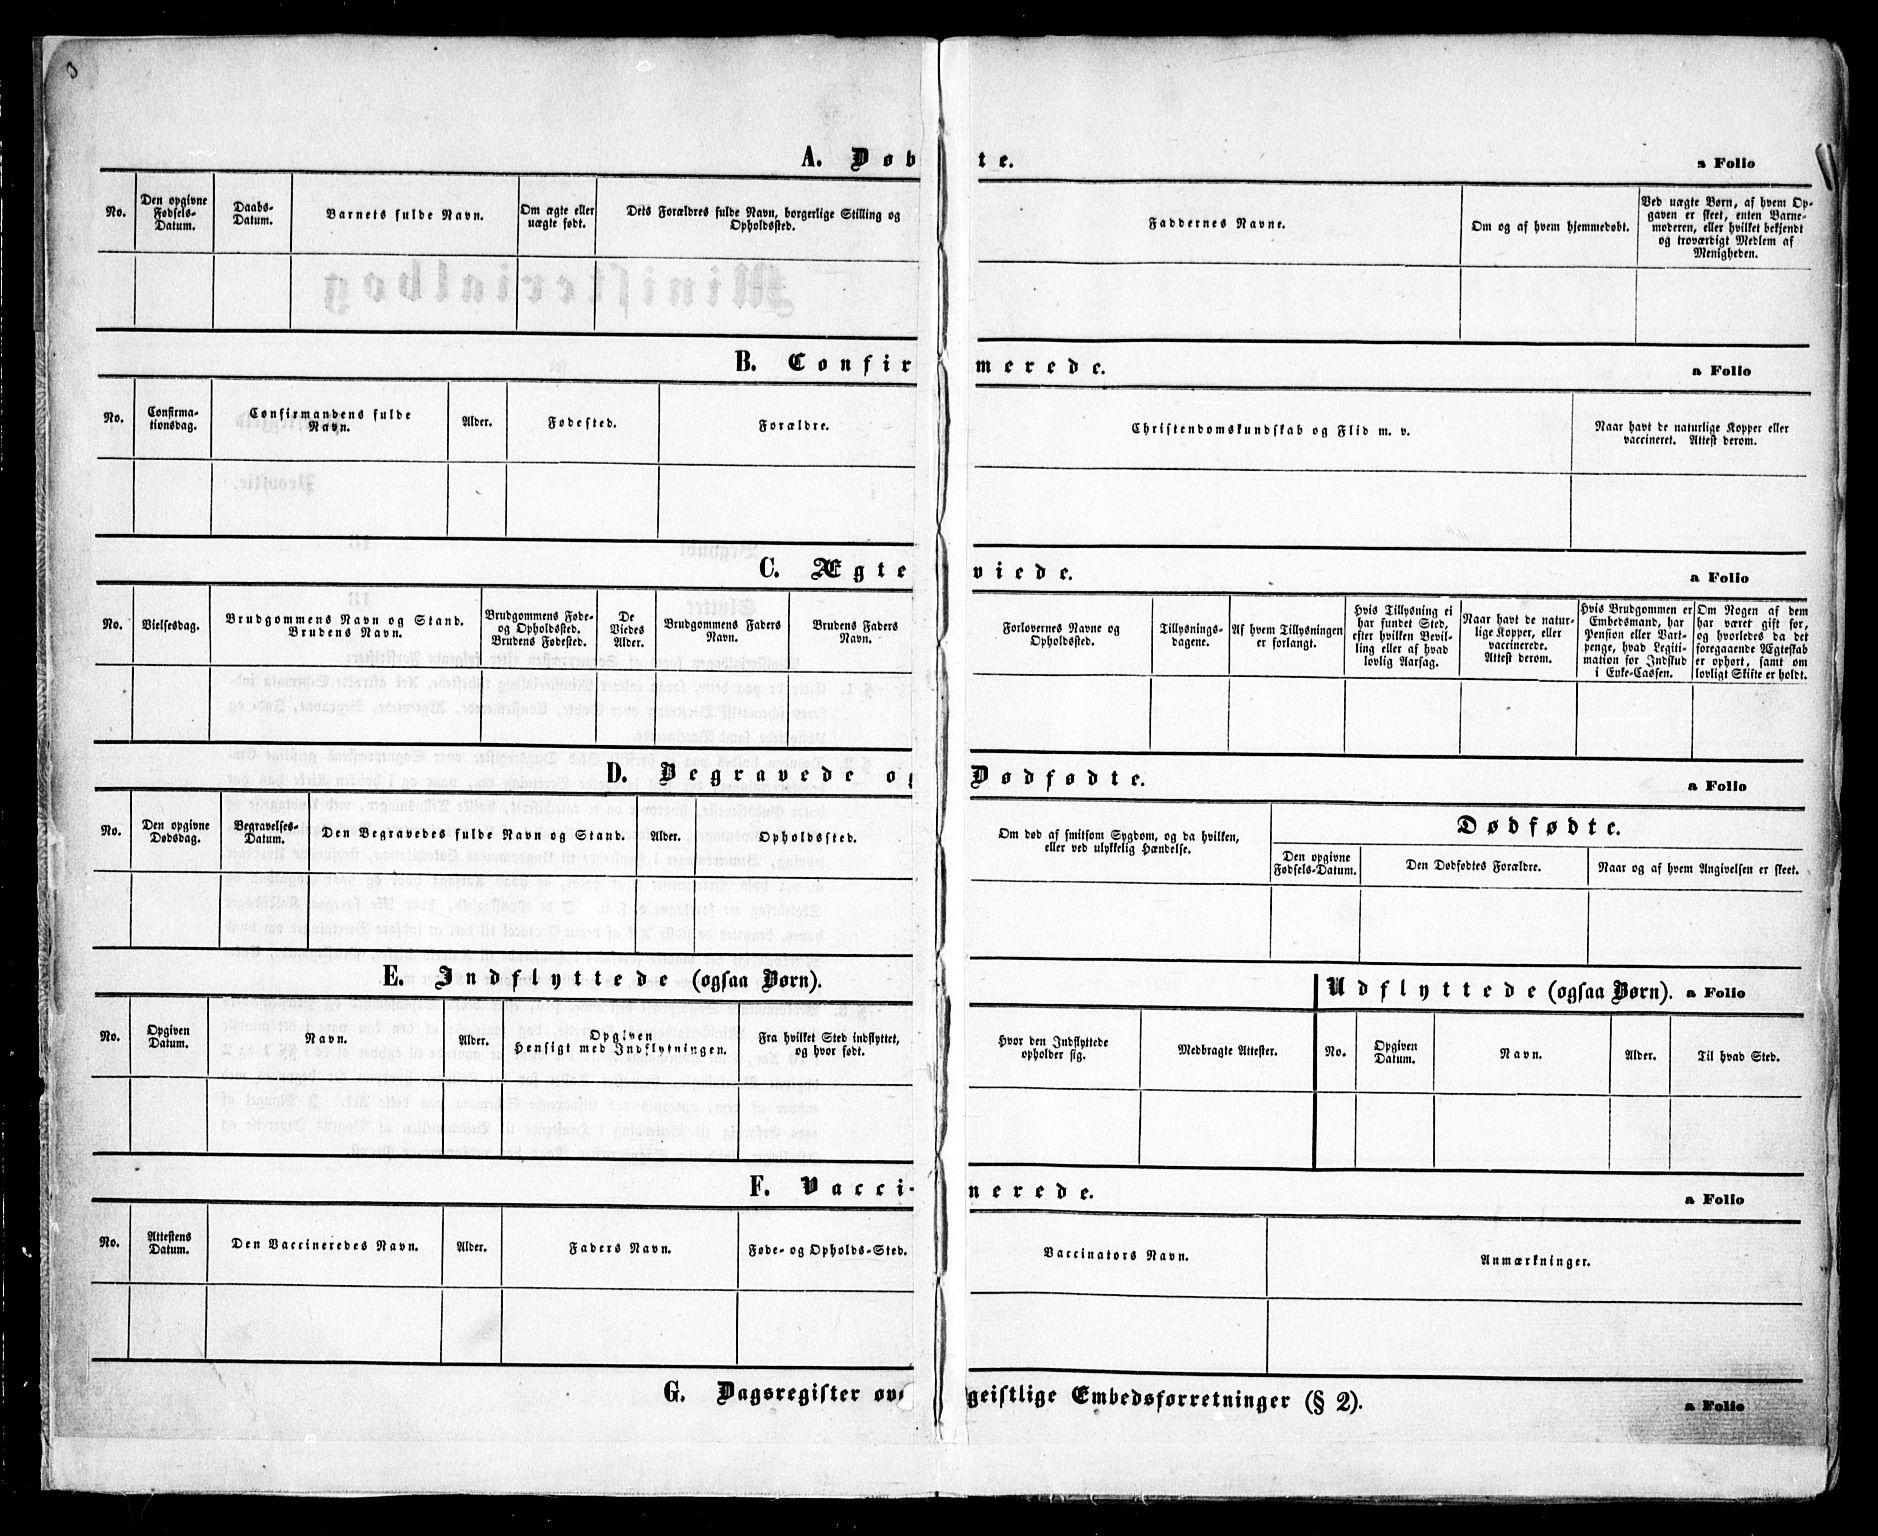 A. Døbte.
a Folio
No.
Den opgivne
Fødsels-
Datum.
Daabs-
Datum.
Barnets fulde Navn.
Om ægte eller
uægte født.
Dets Forældres fulde Navn, borgerlige Stilling og
Opholdssted.
Faddernes Navne.
Om og af hvem hjemmedøbt.
Ved uægte Børn, af hvem Op-
gaven er skeet, enten Barne-
moderen, eller hvilket bekjendt
og troværdigt Medlem af
Menigheden.
B. Confirmerede.
a Folio
No.
Confirma-
tionsdag.
Confirmandens fulde
Navn.
Alder.
Fødested.
Forældre.
Christendomskundskab og Flid m. v.
Naar havt de naturlige Kopper eller
vaccineret. Attest derom.
C. Ægteviede.
a Folio
No.
Vielsesdag.
Brudgommens Navn og Stand.
Brudens Navn.
Brudgommens Føde-
og Opholdssted.
Brudens Fødested.
De
Viedes
Alder.
Brudgommens Faders
Navn.
Brudens Faders
Navn.
Forlovernes Navne og
Opholdssted.
Tillysnings-
dagene.
Af hvem Tillysningen
er forlangt.
Hvis Tillysning ei
har fundet Sted,
efter hvilken Bevil-
ling eller af hvad
lovlig Aarsag.
Naar havt de natur-
lige Kopper, eller
vaccinerede.
Attest derom.
Hvis Brudgommen er
Embedsmand, har
Pension eller Vart-
penge, hvad Legiti-
mation for Indskud
i Enke-Cassen.
Om Nogen af dem
har været gift før,
og hvorledes da det
foregaaende Ægteskab
er ophørt, samt om
lovligt Skifte er holdt.
D. Begravede og Dødfødte.
a Folio
No.
Den opgivne
Dødsdag.
Begravelses-
Datum.
Den Begravedes fulde Navn og Stand.
Alder.
Opholdssted.
Om død af smitsom Sygdom, og da hvilken,
eller ved ulykkelig Hændelse.
Dødfødte.
Den opgivne
Fødsels-Datum.
Den Dødfødtes Forældre.
Naar og af hvem Angivelsen er skeet.
E. Indflyttede (ogsaa Børn).
Udflyttede (ogsaa Børn).
a Folio
No.
Opgiven
Datum.
Navn.
Alder.
Opgiven
Hensigt med Indflytningen.
Fra hvilket Sted indflyttet,
og hvor født.
Hvor den Indflyttede
opholder sig.
Medbragte Attester.
No.
Opgiven
Datum.
Navn.
Alder.
Til hvad Sted.
F. Vaccinerede.
a Folio
No.
Attestens
Datum.
Den Vaccineredes Navn.
Alder.
Faders Navn.
Føde- og Opholds-Sted.
Vaccinators Navn.
Anmærkninger.
G. Dagsregister ove geistlige Embedsforretninger (§ 2).
a Folio